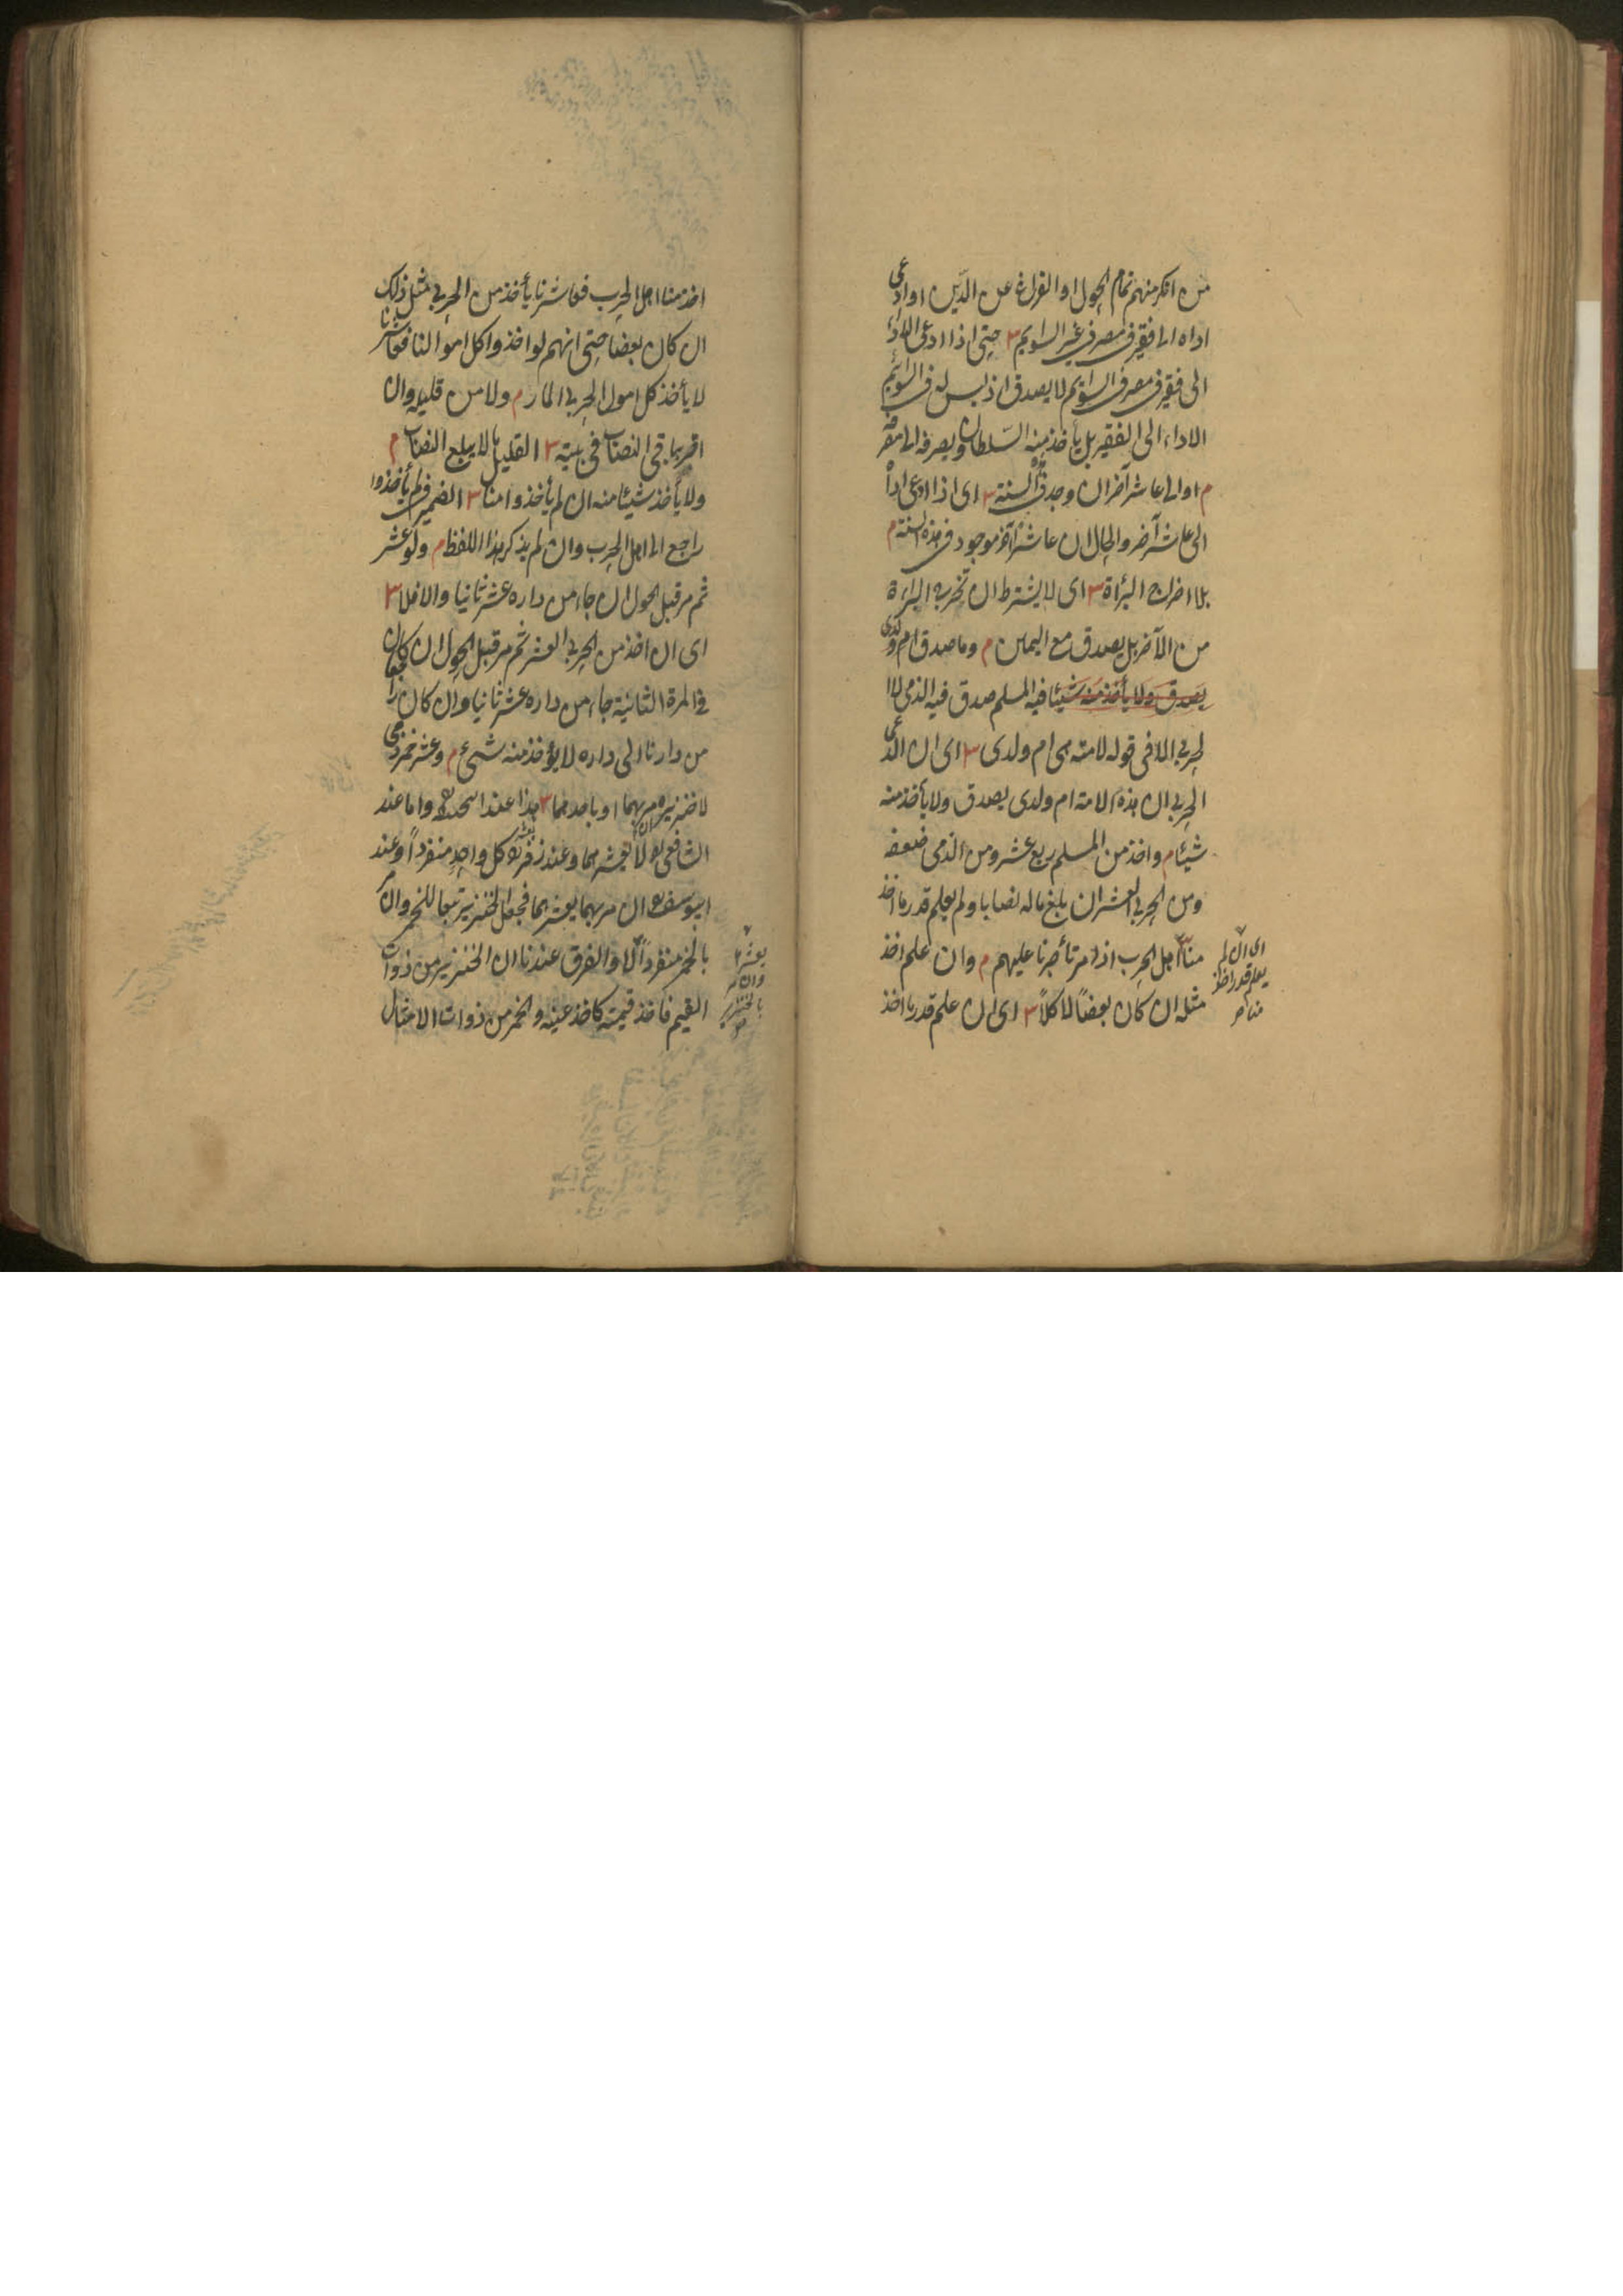 من انكر منهم تمام الحول او الفراغ عن الدَين او ادعى
اداه الى فقير فى مصر فى غير السوايم ٣ حتى اذا ادعى الاداء
الى فقير فى مصر فى السوايم لا يصدق اذ ليس له فى السوايم
الاداء الى الفقير بل يأخذ منه السلطان ويصرفه الى مصرفه
م او الى عاشر آخر ان وجد فى السنة ٣ اى اذا ادعى اداءً
الى عاشر آخر والحال ان عاشرًا آخر موجود فى هذه السنة م
بلا اخراج البرأة ٣ اى لا يشترط ان يخرج البراءة
من الآخر بل يصدق مع اليمين م وما صدق ام ولدى
يصدق ولا يأخذ منه شيئا فيه المسلم صدق فيه الذمى لا ا
لحربى الا فى قوله لامته هى ام ولدى ٣ اى ان ادعى
الحربى ان هذه الامة ام ولدى يصدق ولا يأخذ منه
شيئا م واخذ من المسلم ربع عشر ومن الذمى ضعفه
ومن الحربى العشر ان بلغ ماله نصابا ولم يعلم قدر ما اخذ
منا ٣ اهل الحرب اذا مر تأجرنا عليهم م وان علم اخذ
مثله ان كان بعضًا لا كلاً ٣ اى ان علم قدر ما اخذ
اى ان لم
يعلم قدر ما اخذ
منا
اخذ منا اهل الحرب فعاشرنا يأخذ من الحربى مثل ذلك
ان كان بعضا حتى انهم لو اخذوا كل اموالنا فعاشرنا
لا يأخذ كل امول الحربى المار م ولا من قليله وان
اقر بباقى النصاب فى بيته ٣ القليل ما لا يبلغ النصاب م
ولا يأخذ شيئا منه ان لم يأخذوا منا ٣ الضمير فى لم يأخذوا
راجع الى اهل الحرب وان لم يذكر بهذا اللفظ م ولو عشر
ثم مر قبل الحول ان جاء من داره عشر ثانيا والا فلا ٣
اى ان اخذ من الحربى العشر ثم مر قبل الحول ان كان
فى المرة الثانية جاء من داره عشر ثانيا وان كان راجعا
من دارنا الى داره لا يؤخذ منه شىء م وعشر خمر ذمى
لا خنزيره مر بهما او باحدهما ٣ هذا عند ابى حنيفة واما عند
الشافعى لا يعشرهما وعند زفر يعشر كل واحدٍ منفرداً وعند
ابى يوسف ان مر بهما يعشرهما فجعل الخنزير تبعا للخمر وان مر
بالخمر منفرداً لا والفرق عندنا ان الخنزير من ذوات
القيم فاخذ قيمته كاخذ عينه والخمر من ذوات الامثال
يعشرها
وان مر
بالخنزير